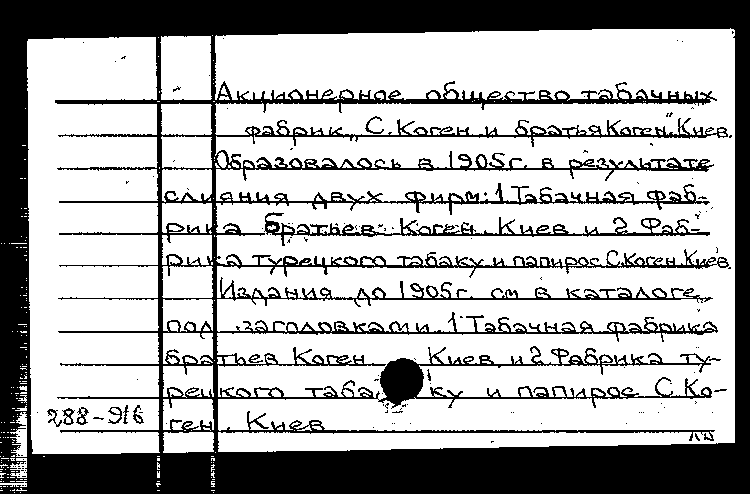 Акционерное общество табачных
фабрик „С. Коген и братья Коген". Киев.
Образовалось в 1905г. в результате
слияния двух фирм: 1 Табачная фаб-
рика братьев Коген. Киев и 2. Фаб-
рика турецкого табаку и папирос С. Коген. Киев.
Издания до 1905г. см в каталоге
под заголовками. 1 Табачная фабрика
братьев Коген Киев и 2 Фабрика ту-
рецкого табаку и папирос С. Ко-
ген. Киев
288-916